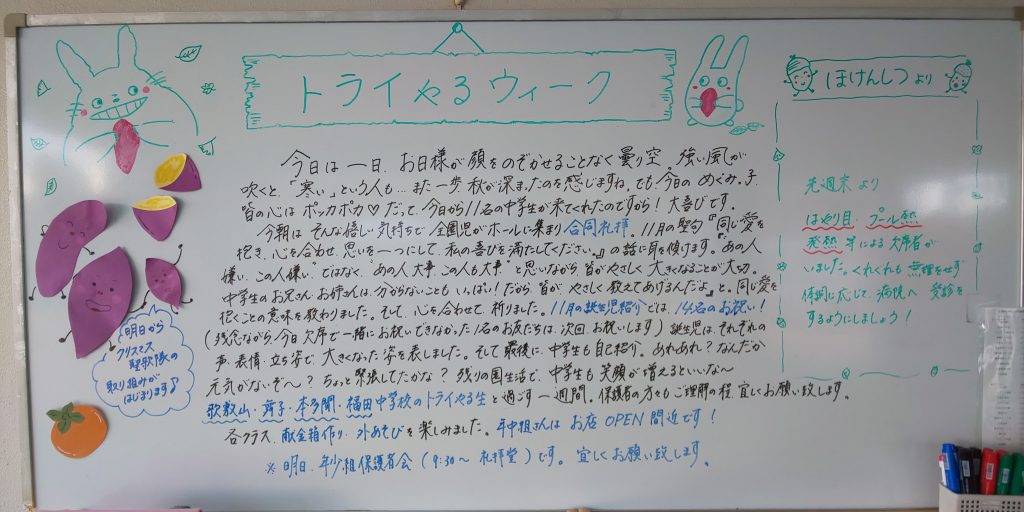 トライやるウィーク
今日は一日、お日様が顔をのぞかせることなく曇り空。強い風が
吹くと、「寒い」という人も…また一歩秋が深まったのを感じますね。でも今日のめぐみっ子、
皆の心はポッカポカ♡だって、今日から11名の中学生が来てくれたのですから！大喜びです。
今朝は そんな嬉しい気持ちで 全園児がホールに集まり合同礼拝。11月の聖句『同じ愛を
抱き、心を合わせ、思いを一つにして、私の喜びを満たしてください。』の話に耳を傾けます。"あの人
嫌い、この人嫌い"ではなく、"あの人大事、この人も大事"と思いながら皆がやさしく大きくなることが大切。
中学生のお兄さんお姉さんは、分からないこともいっぱい！だから皆がやさしく教えてあげるんだよ』と、同じ愛を
抱くことの意味を教わりました。そして、心を合わせて祈りました。11月の誕生児紹介では、14名のお祝い！
(残念ながら今日欠席で一緒にお祝いできなかった1名のお友だちは、次回お祝いします)誕生児は、それぞれの
声、表情、立ち姿で、大きくなった姿を表しました。そして最後に、中学生も自己紹介。あれあれ？なんだか
元気がないぞ〜？ちょっと緊張してたかな？残りの園生活で、中学生も笑顔が増えるといいな〜
歌敷山・舞子・本多聞・福田中学校のトライやる生と過ごす一週間。保護者の方々もご理解の程、宜しくお願い致します。
各クラス、献金箱作り、外あそびを楽しみました。年中組さんは お店OPEN間近です！
※明日、年少組保護者会(9:30〜礼拝堂)です。宜しくお願い致します。
明日から
クリスマス
聖歌隊の
取り組みが
はじまります♪
ほけんしつより
先週末より
はやり目、プール熱
発熱 等による欠席者が
いました。くれぐれも無理をせず
体調に応じて、病院へ受診を
するようにしましょう！